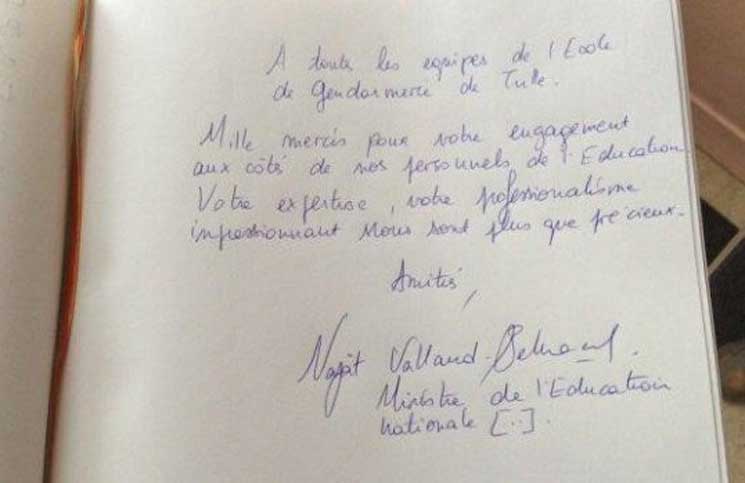 A toute les equipes de l'Ecole
de Gendarmerie de Tulle.
Mille mercis pour votre engagement
aux côté de nos personnels de l'Education
Votre expertise, votre professionnalisme
impressionnant nous sont plus que précieux.
Amitiés,
Najat Vallaud-Belkacem.
Ministre de l'Education
nationale [..].